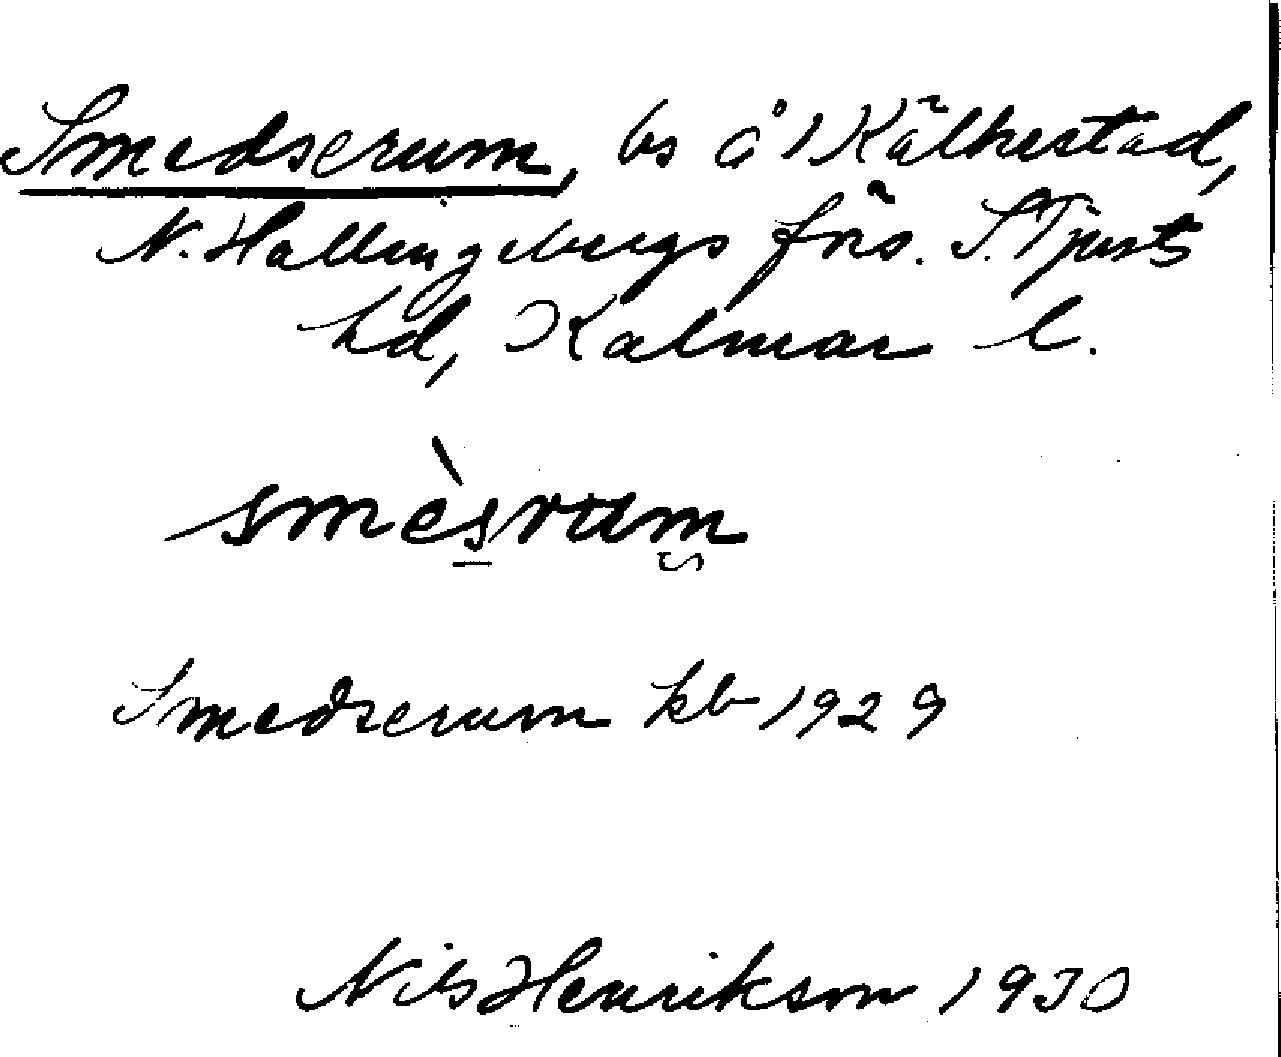 Smedserum, bs å Kälkestad,
N. Hallingebergs förs. S. Tjusts
hd, Kalmar l.
smèsrum
Smedserum kb 1929
Nils Henrikson 1930